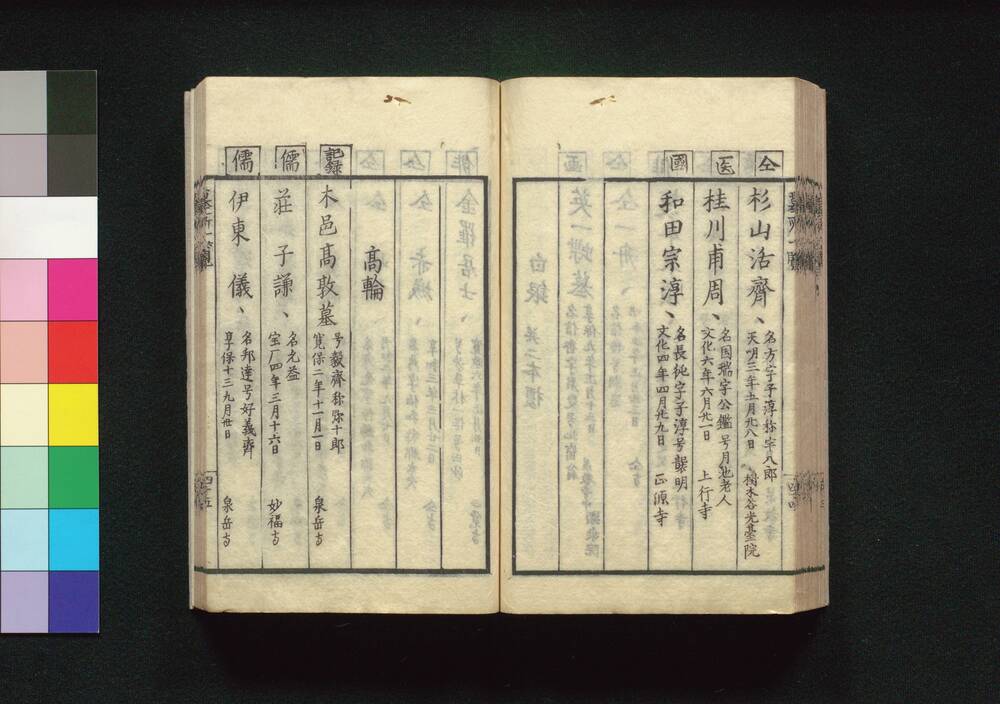 仝
杉山活齊、
名方字子淳称字八郎
天明三年五月廿八日、樹木谷光臺院
医
桂川甫周、
名国瑞字公鑑号月池老人
文化六年六月廿一日 上行寺
國
和田宗淳、
名長純字子淳号龔明
文化四年四月廿九日 正源寺
髙輪
記録
木邑髙敦墓
号毅齊称弥十郎
寛保二年十一月一日 泉岳寺
儒
荘子謙、
名允益
宝厂四年三月十六日 妙福寺
儒
伊東儀、
名邦達号好義齊
享保十三九月廿日 泉岳寺